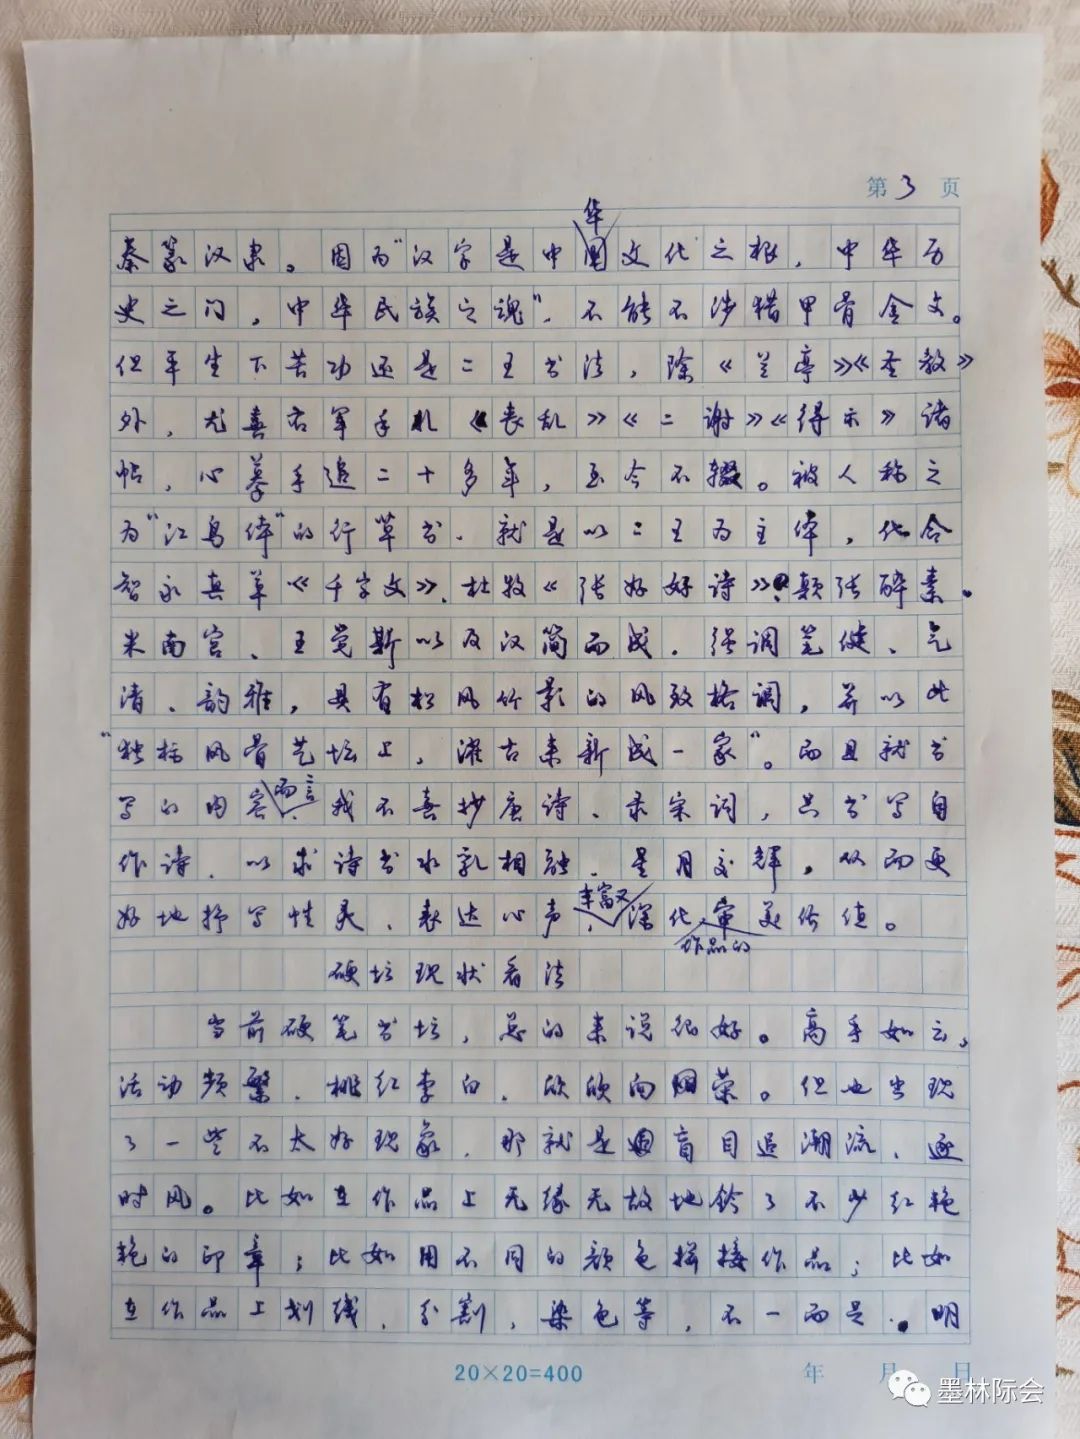 第3页
华
秦篆汉隶。因为"汉字是中国文化之根,中华历
史之门,中华民族之魂",不能不涉猎甲骨金文。
但平生下苦功还是二王书法,除《兰亭》《圣教》
外,尤喜右军手札《丧乱》《二谢》《得示》诸
帖,心摹手追二十多年,至今不辍。被人称之
为"江鸟体"的行草书,就是以二王为主体,化合
智永真草《千字文》、杜牧《张好好诗》、颠张醉素、
米南宫、王觉斯以及汉简而成。强调笔健、气
清、韵雅,具有松风竹影的风致格调,并以此
"独标风骨艺坛上,濯古来新成一家"。而且就书
写的内容而言,我不喜抄唐诗、录宋词,只书写自
作诗,以求诗书水乳相融,星月交辉,从而更
好地抒写性灵、表达心声,丰富又深化作品的审美价值。
硬坛现状看法
当前硬笔书坛,总的来说很好。高手如云,
活动频繁,桃红李白,欣欣向荣。但也出现
了一些不太好现象,那就是盲目追潮流、逐
时风。比如在作品上无缘无故地钤了不少红艳
艳的印章;比如用不同的颜色拼接作品;比如
在作品上划线,分割,染色等,不一而足。明
20×20=400 年 月 日
墨林际会